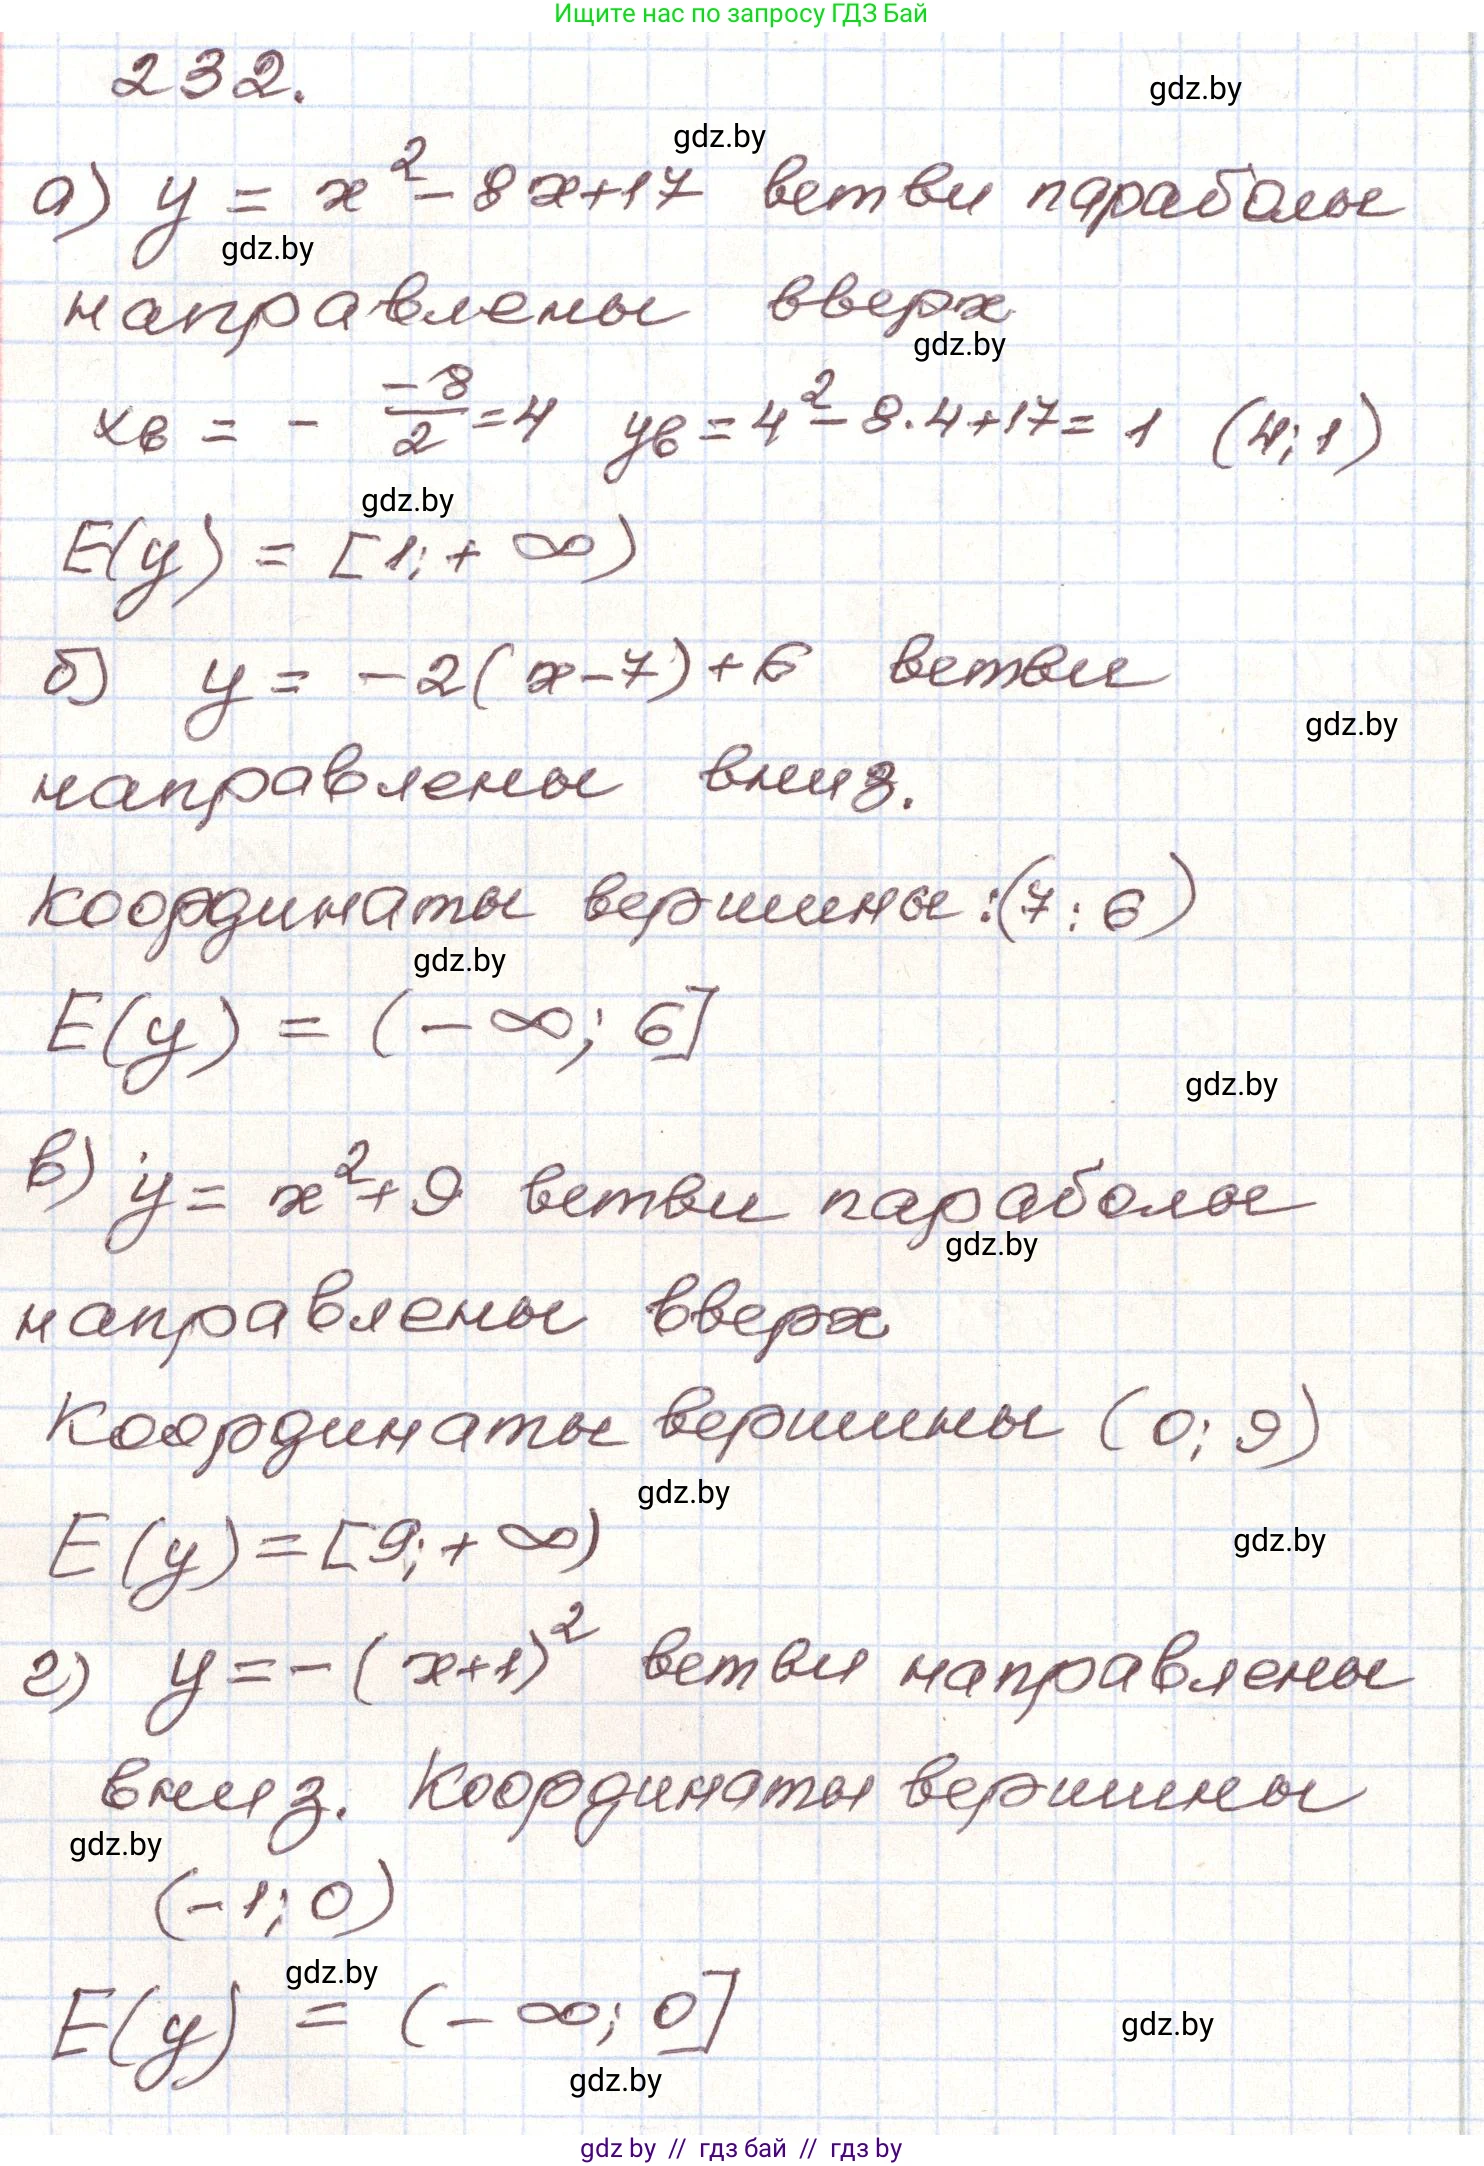 Ищите нас по запросу ГДЗ Бай
232.
gdz.by
gdz.by
а) y = x² - 8x + 17 ветви параболы
gdz.by
направлены вверх
gdz.by
xв = - -8/2 = 4 yв = 4² - 8·4 + 17 = 1 (4; 1)
gdz.by
E(y) = [1; + ∞)
б) y = -2(x-7) + 6 ветви
gdz.by
направлены вниз.
координаты вершины: (7; 6)
gdz.by
E(y) = (- ∞; 6]
gdz.by
в) y = x² + 9 ветви параболы
gdz.by
направлены вверх
Координаты вершины (0; 9)
gdz.by
E(y) = [9; + ∞)
gdz.by
г) y = -(x+1)² ветви направлены
вниз. Координаты вершины
gdz.by
(-1; 0)
gdz.by
E(y) = (- ∞; 0]
gdz.by
gdz.by
gdz by // гдз бай // гдз by